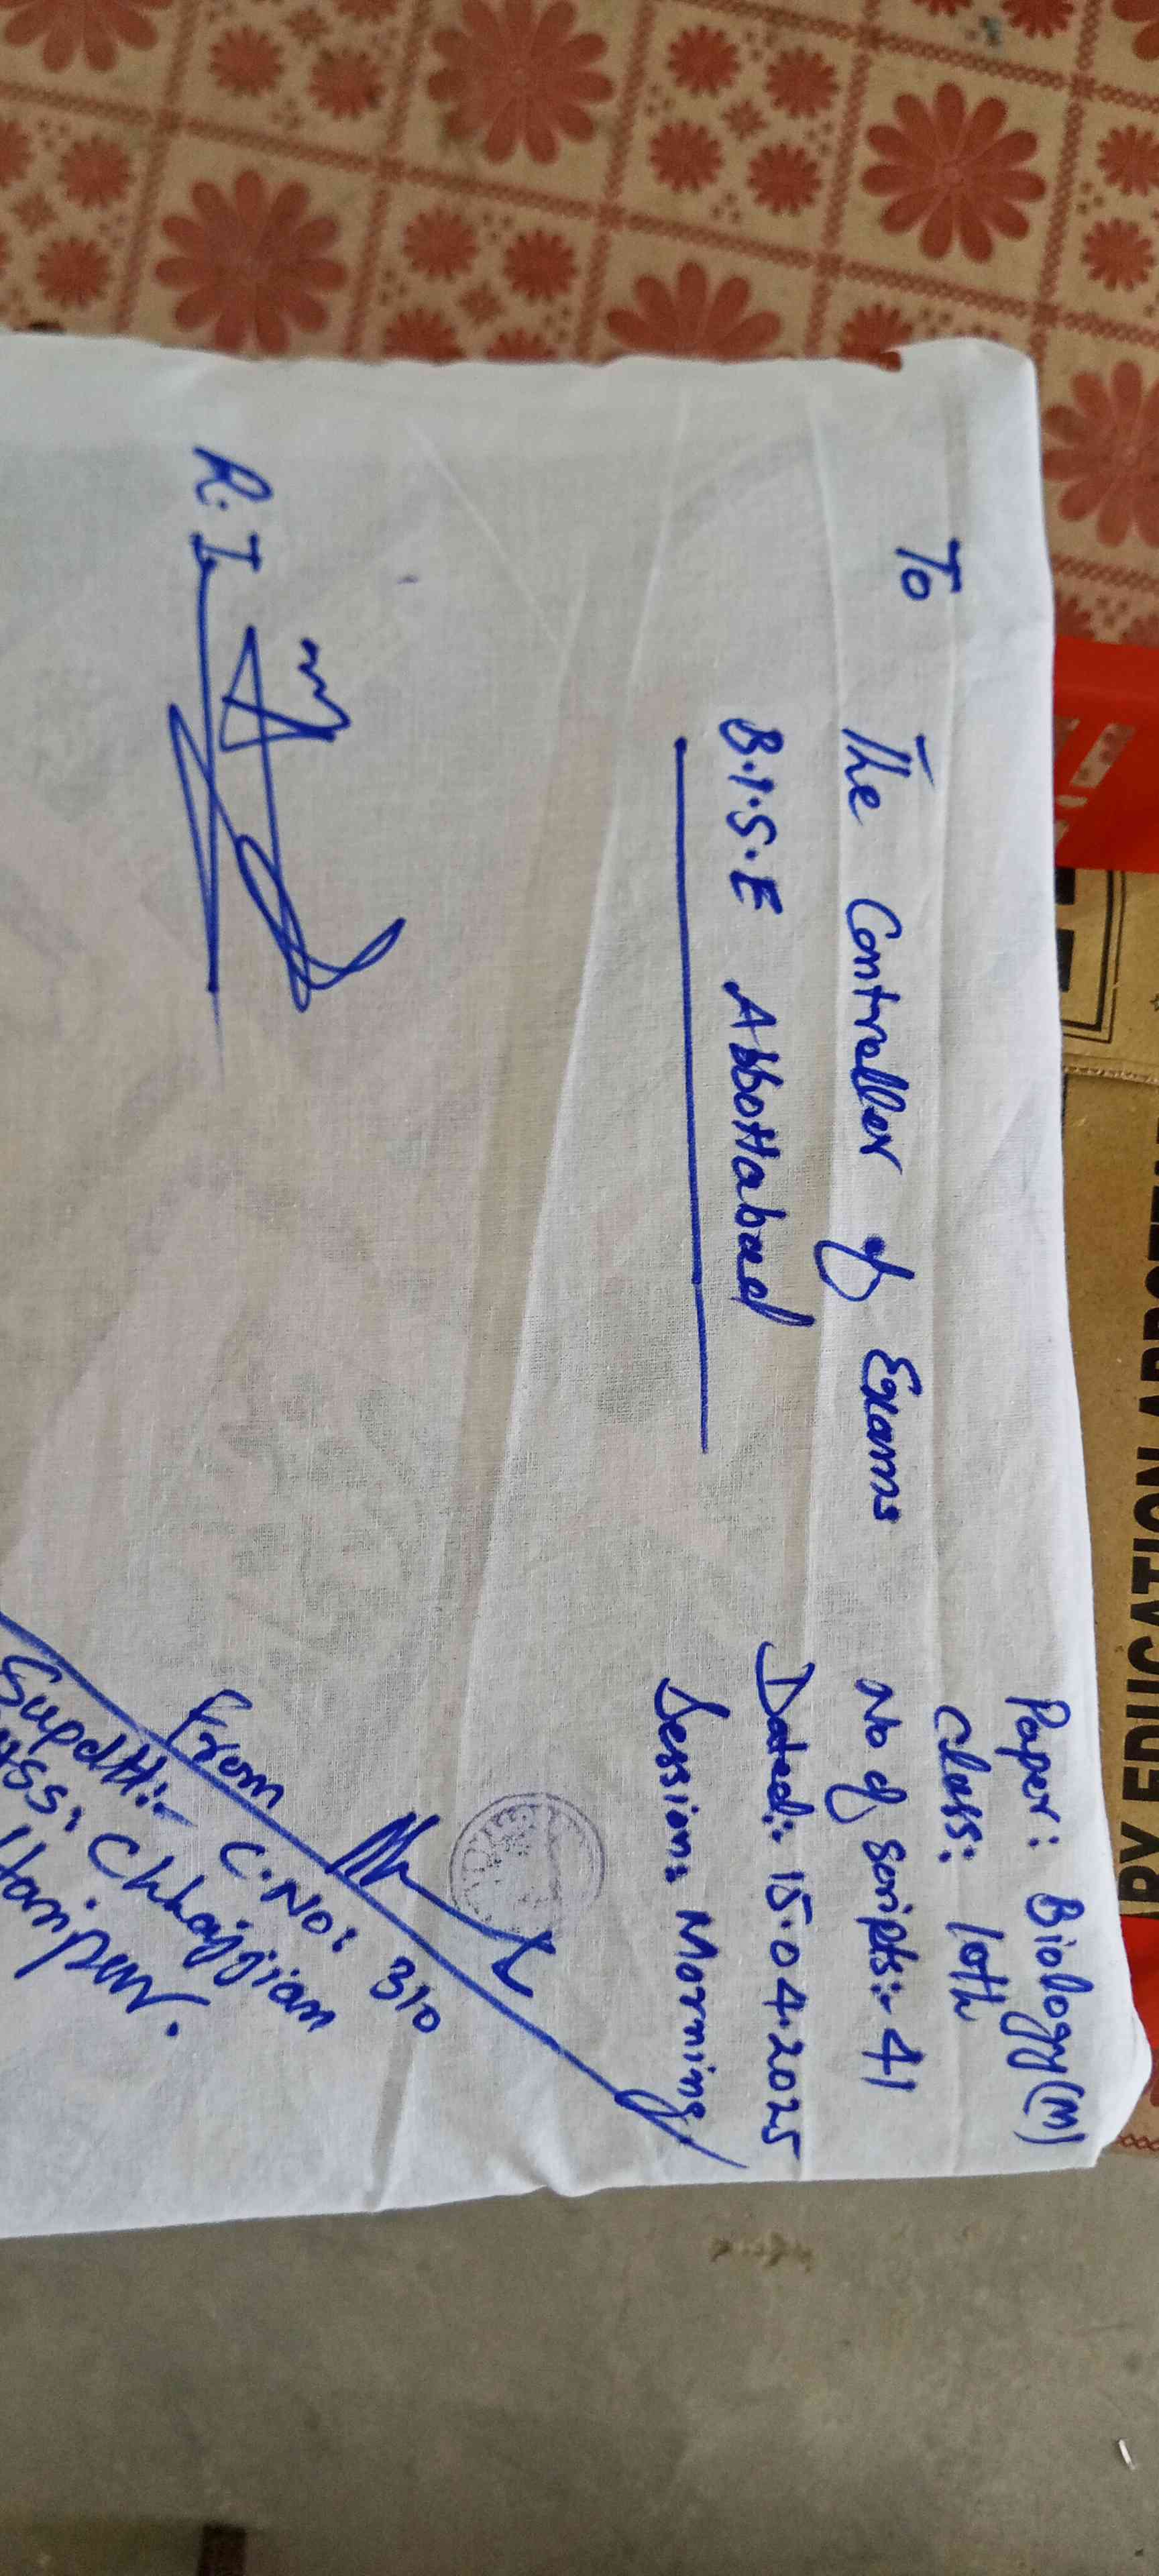 Paper: Biology(M)
Class: 10th
To
The Controller of Exams
No of scripts:- 41
B.I.S.E Abbottabad
Dated:- 15.04.2025
Session: Morning
R.I
From
Supdtt:- C.No: 310
Chhajjian
Haripur.
RY EDUCATION